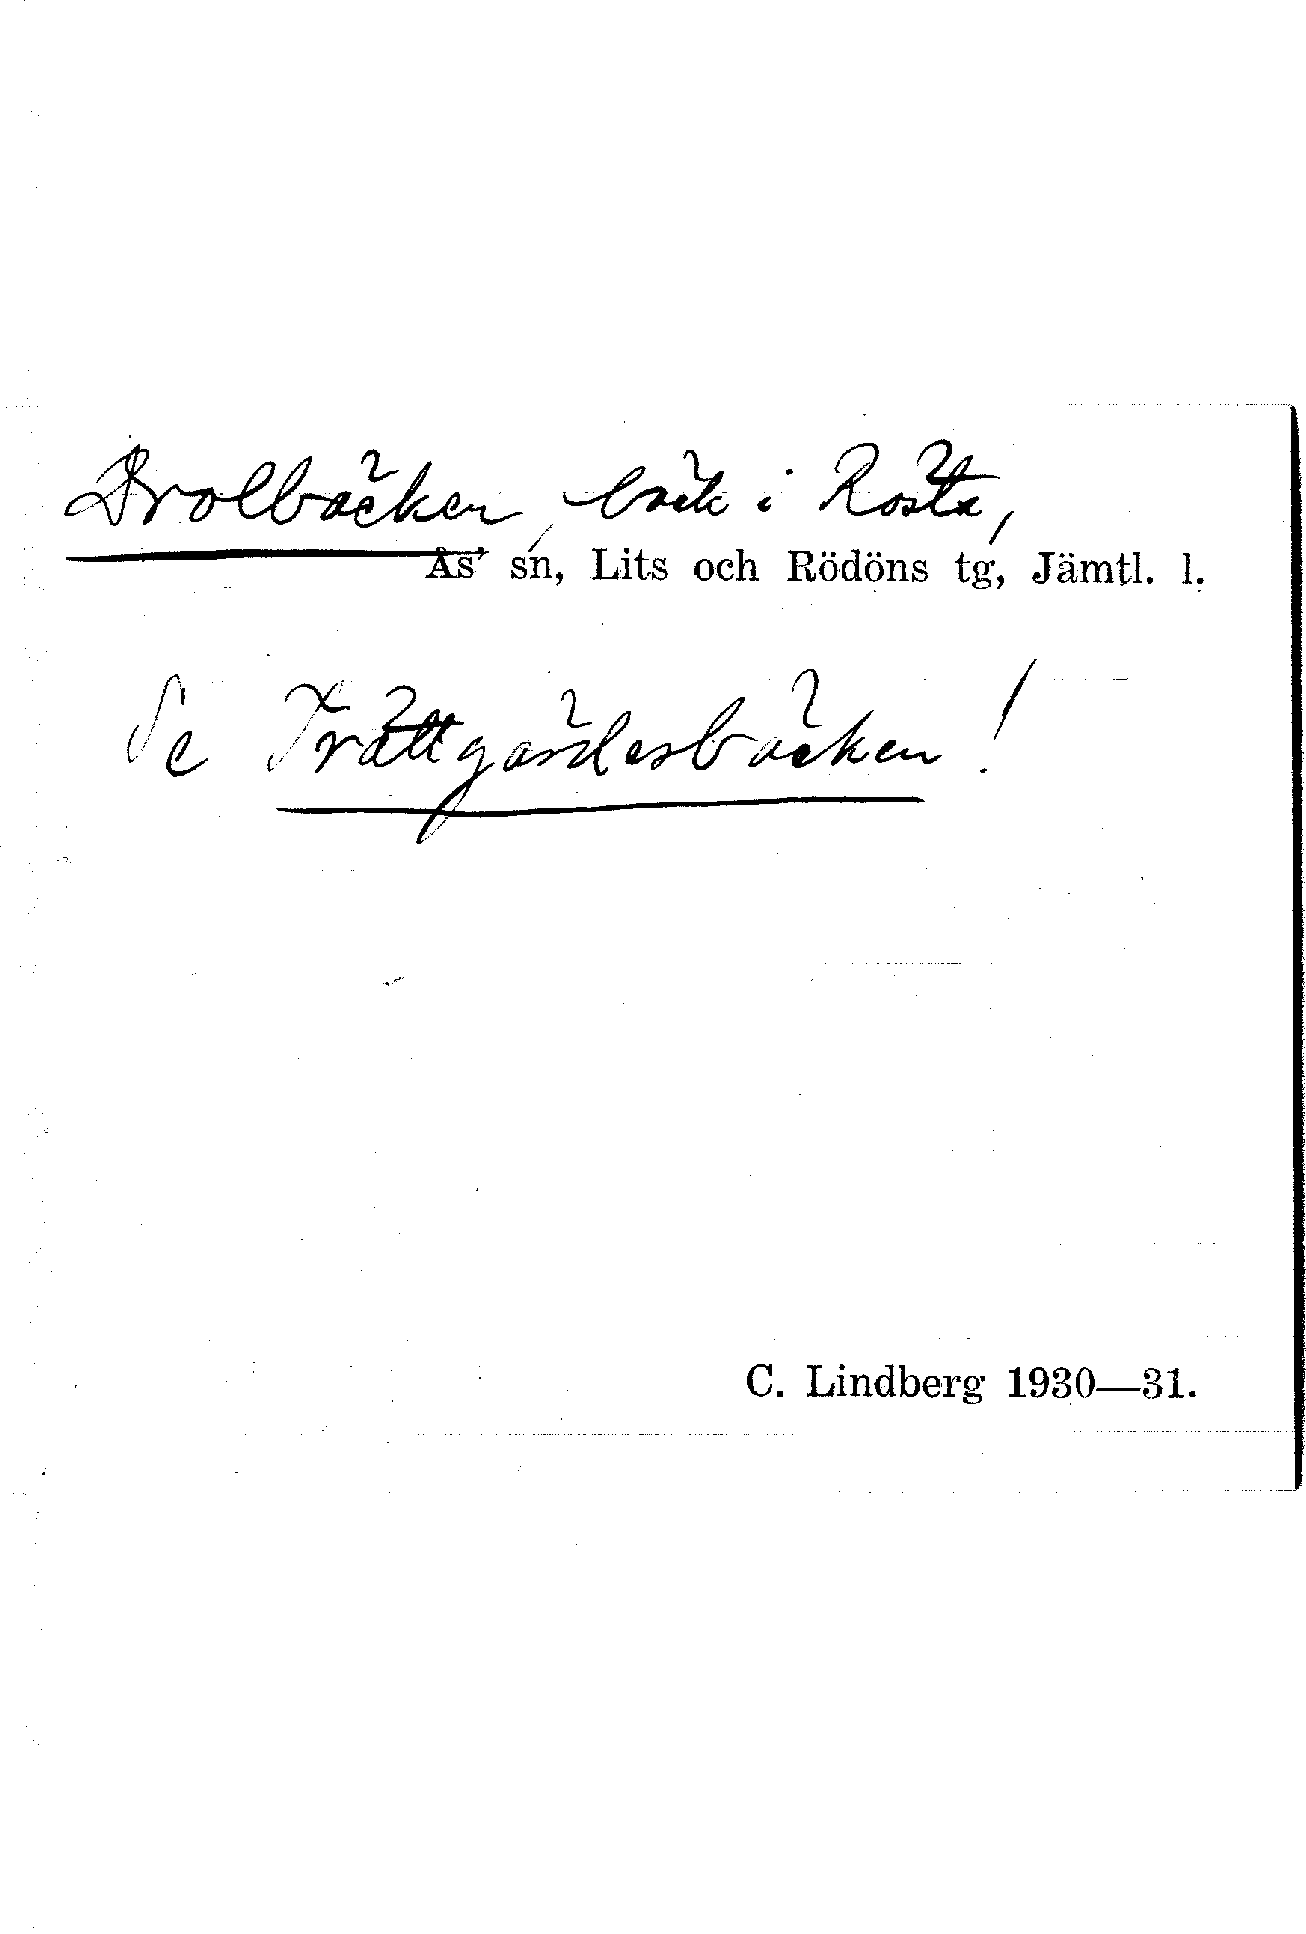 Drolbäcken, bäck i Rösta,
Ås' sn, Lits och Rödöns tg, Jämtl. l.
Se Trättgärdesbäcken!
C. Lindberg 1930—31.